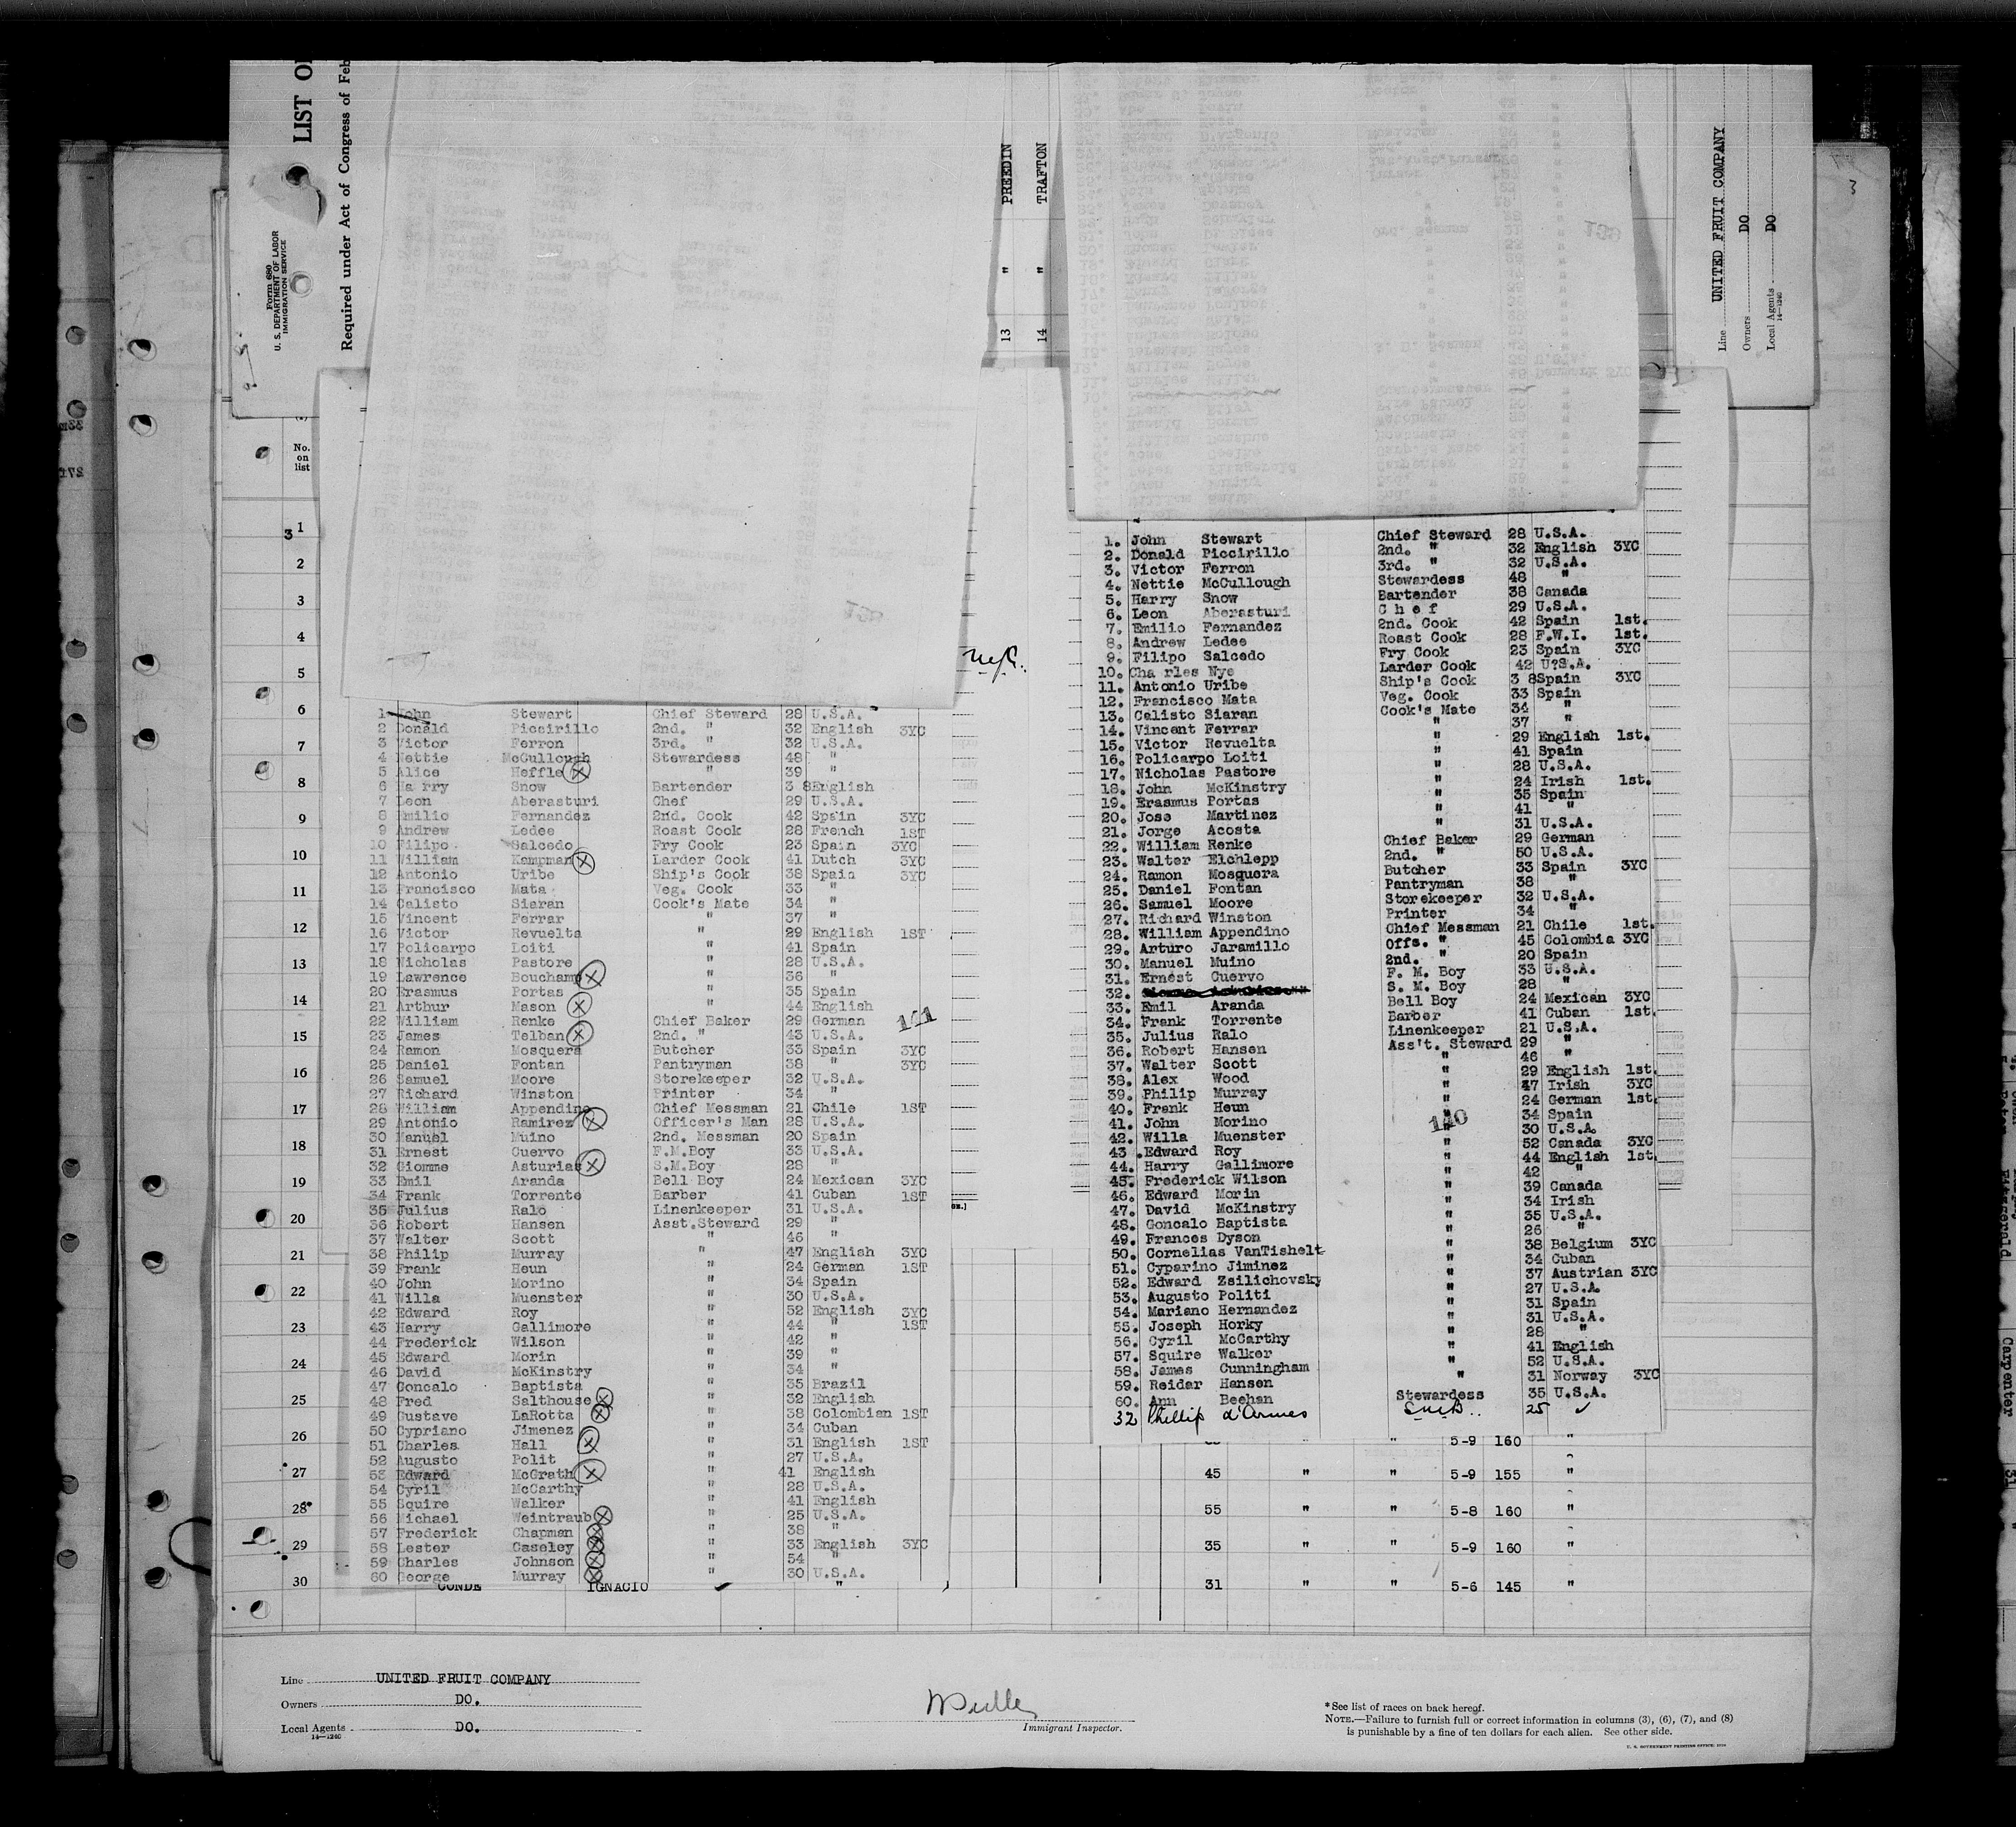 LIST OF
Required under Act of Congress of Feb
Form 680
U. S. DEPARTMENT OF LABOR
IMMIGRATION SERVICE
13 " PREEDIN
14 " TRAFTON
Line UNITED FRUIT COMPANY
Owners DO
Local Agents DO
14—1240
3
No. on list
3
1
2
3
4
5
6
7
8
9
10
11
12
13
14
15
16
17
18
19
20
21
22
23
24
25
26
27
28
29
30
1 John Stewart Chief Steward 28 U.S.A.
2 Donald Piccirillo 2nd. " 32 English 3YC
3 Victor Ferron 3rd. " 32 U.S.A.
4 Nettie McCullough Stewardess 48 "
5 Alice Heffle " 39 "
6 Ha rry Snow Bartender 3 8 English
7 Leon Aberasturi Chef 29 U.S.A.
8 Emilio Fernandez 2nd. Cook 42 Spain 3YC
9 Andrew Ledee Roast Cook 28 French 1ST
10 Filipo Salcedo Fry Cook 23 Spain 3YC
11 William Kampman Larder Cook 41 Dutch 3YC
12 Antonio Uribe Ship's Cook 38 Spain 3YC
13 Francisco Mata Veg. Cook 33 "
14 Calisto Siaran Cook's Mate 34 "
15 Vincent Ferrar " 37 "
16 Victor Revuelta " 29 English 1ST
17 Policarpo Loiti " 41 Spain
18 Nicholas Pastore " 28 U.S.A.
19 Lawrence Bouchamp " 36 "
20 Erasmus Portas " 35 Spain
21 Arthur Mason " 44 English
22 William Renke Chief Baker 29 German
141
23 James Telban 2nd. " 43 U.S.A.
24 Ramon Mosquera Butcher 33 Spain 3YC
25 Daniel Fontan Pantryman 38 " 3YC
26 Samuel Moore Storekeeper 32 U.S.A.
27 Richard Winston Printer 34 "
28 William Appendino Chief Messman 21 Chile 1ST
29 Antonio Ramirez Officer's Man 28 U.S.A.
30 Manuel Muino 2nd. Messman 20 Spain
31 Ernest Cuervo F.M.Boy 33 U.S.A.
32 Giomme Asturias S.M.Boy 28 "
33 Emil Aranda Bell Boy 24 Mexican 3YC
34 Frank Torrente Barber 41 Cuban 1ST
35 Julius Ralo Linenkeeper 31 U.S.A.
36 Robert Hansen Asst.Steward 29 "
37 Walter Scott " 46 "
38 Philip Murray " 47 English 3YC
39 Frank Heun " 24 German 1ST
40 John Morino " 34 Spain
41 Willa Muenster " 30 U.S.A.
42 Edward Roy " 52 English 3YC
43 Harry Gallimore " 44 " 1ST
44 Frederick Wilson " 42 "
45 Edward Morin " 39 "
46 David McKinstry " 34 "
47 Goncalo Baptista " 35 Brazil
48 Fred Salthouse " 32 English
49 Gustave LaRotta " 38 Colombian 1ST
50 Cypriano Jimenez " 34 Cuban
51 Charles Hall " 31 English 1ST
52 Augusto Polit " 27 U.S.A.
53 Edward McGrath " 41 English
54 Cyril McCarthy " 28 U.S.A.
55 Squire Walker " 41 English
56 Michael Weintraub " 25 U.S.A.
57 Frederick Chapman " 38 "
58 Lester Caseley " 33 English 3YC
59 Charles Johnson " 54 "
60 George Murray " 30 U.S.A.
CONDE IGNACIO "
1. John Stewart Chief Steward 28 U.S.A.
2. Donald Piccirillo 2nd. " 32 English 3YC
3. Victor Ferron 3rd. " 32 U.S.A.
4. Nettie McCullough Stewardess 48 "
5. Harry Snow Bartender 38 Canada
6. Leon Aberasturi C h e f 29 U.S.A.
7. Emilio Fernandez 2nd. Cook 42 Spain 1st.
8. Andrew Ledee Roast Cook 28 F.W.I. 1st.
9. Filipo Salcedo Fry Cook 23 Spain 3YC
10. Cha rles Nye Larder Cook 42 U?S.A.
11. Antonio Uribe Ship's Cook 3 8 Spain 3YC
12. Francisco Mata Veg. Cook 33 Spain
13. Calisto Siaran Cook's Mate 34 "
14. Vincent Ferrar " 37 "
15. Victor Revuelta " 29 English 1st.
16. Policarpo Loiti " 41 Spain
17. Nicholas Pastore " 28 U.S.A.
18. John McKinstry " 24 Irish 1st.
19. Erasmus Portas " 35 Spain
20. Jose Martinez " 41 "
21. Jorge Acosta " 31 U.S.A.
22. William Renke Chief Baker 29 German
23. Walter Eichlepp 2nd. " 50 U.S.A.
24. Ramon Mosquera Butcher 33 Spain 3YC
25. Daniel Fontan Pantryman 38 "
26. Samuel Moore Storekeeper 32 U.S.A.
27. Richard Winston Printer 34 "
28. William Appendino Chief Messman 21 Chile 1st.
29. Arturo Jaramillo Offs. " 45 Colombia 3YC
30. Manuel Muino 2nd. " 20 Spain
31. Ernest Cuervo F. M. Boy 33 U.S.A.
32. S. M. Boy 28 "
33. Emil Aranda Bell Boy 24 Mexican 3YC
34. Frank Torrente Barber 41 Cuban 1st.
35. Julius Ralo Linenkeeper 21 U.S.A.
36. Robert Hansen Ass't. Steward 29 "
37. Walter Scott " 46 "
38. Alex Wood " 29 English 1st.
39. Philip Murray " 47 Irish 3YC
40. Frank Heun " 24 German 1st.
41. John Morino " 34 Spain
140
42. Willa Muenster " 30 U.S.A
43. Edward Roy " 52 Canada 3YC
44. Harry Gallimore " 44 English 1st.
45. Frederick Wilson " 42 "
46. Edward Morin " 39 Canada
47. David McKinstry " 34 Irish
48. Goncalo Baptista " 35 U.S.A.
49. Frances Dyson " 26 "
50. Cornelias VanTishelt " 38 Belgium 3YC
51. Cyparino Jiminez " 34 Cuban
52. Edward Zsilichovsky " 37 Austrian 3YC
53. Augusto Politi " 27 U.S.A
54. Mariano Hernandez " 31 Spain
55. Joseph Horky " 31 U.S.A.
56. Cyril McCarthy " 28 "
57. Squire Walker " 41 English
58. James Cunningham " 52 U.S.A.
59. Reidar Hansen " 31 Norway 3YC
60. Ann Beehan Stewardess 35 U.S.A.
32 Phillip d'Armes 25 ✓
" 5-9 160 "
45 " " 5-9 155 "
55 " " 5-8 160 "
35 " " 5-9 160 "
31 " " 5-6 145 "
Line UNITED FRUIT COMPANY
Owners DO.
Local Agents DO.
14—1240
Immigrant Inspector.
*See list of races on back hereof.
NOTE.—Failure to furnish full or correct information in columns (3), (6), (7), and (8)
is punishable by a fine of ten dollars for each alien. See other side.
Carpenter